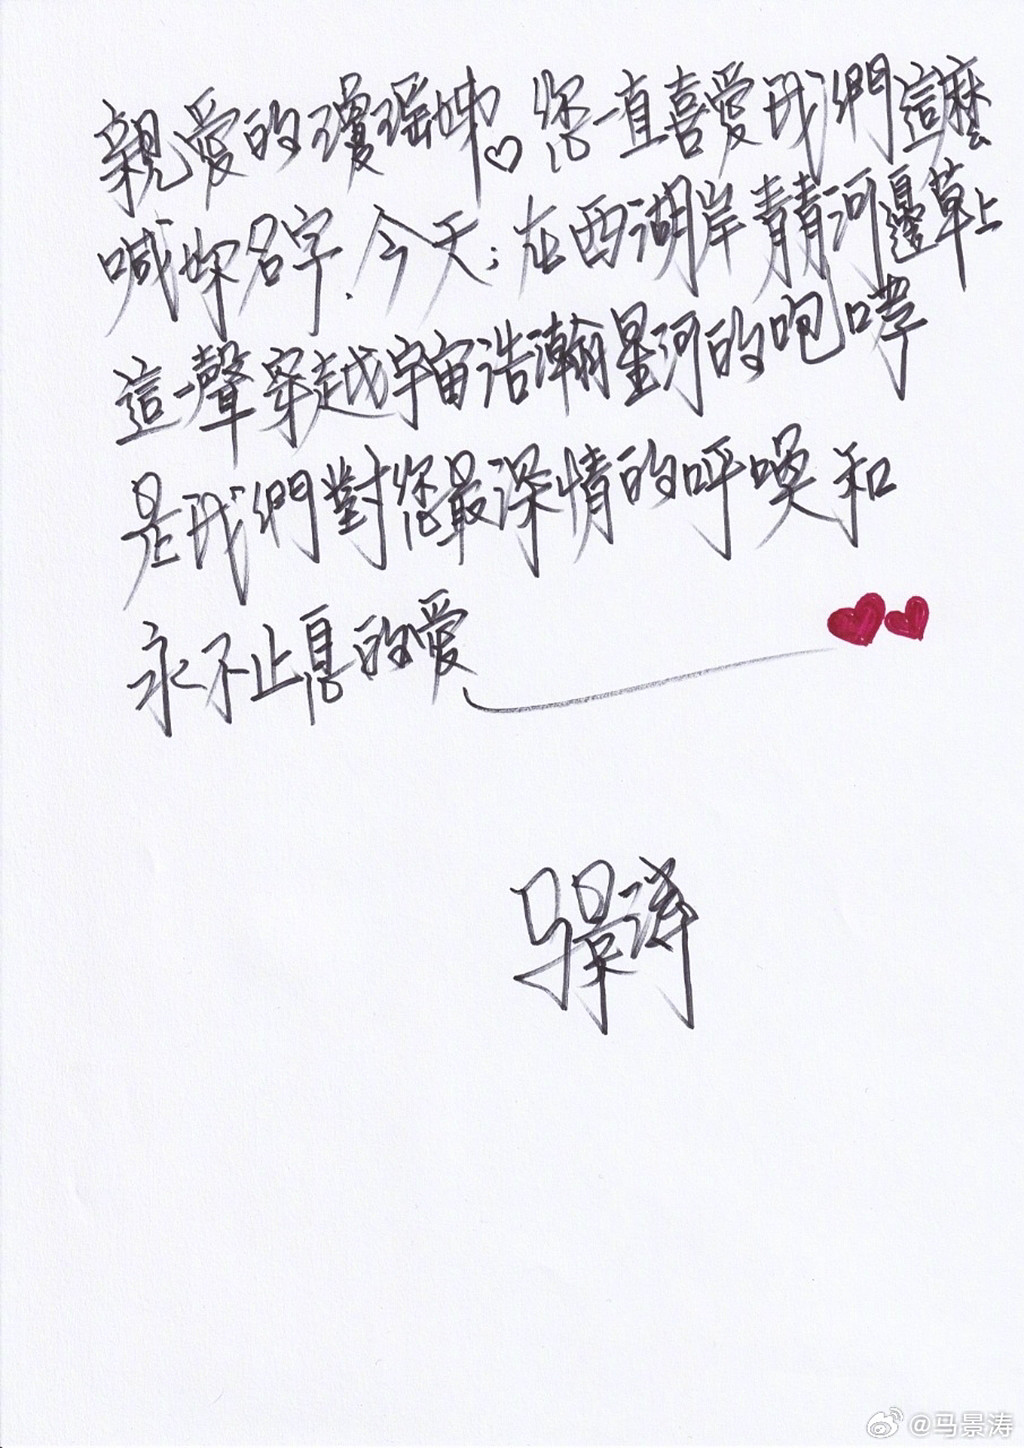 親愛的瓊瑤姊。您一直喜愛我們這麼
喊妳名字.今天;在西湖岸青青河邊草上
這一聲穿越宇宙浩瀚星河的咆哮
是我們對您最深情的呼喚和
永不止息的愛
@马景涛